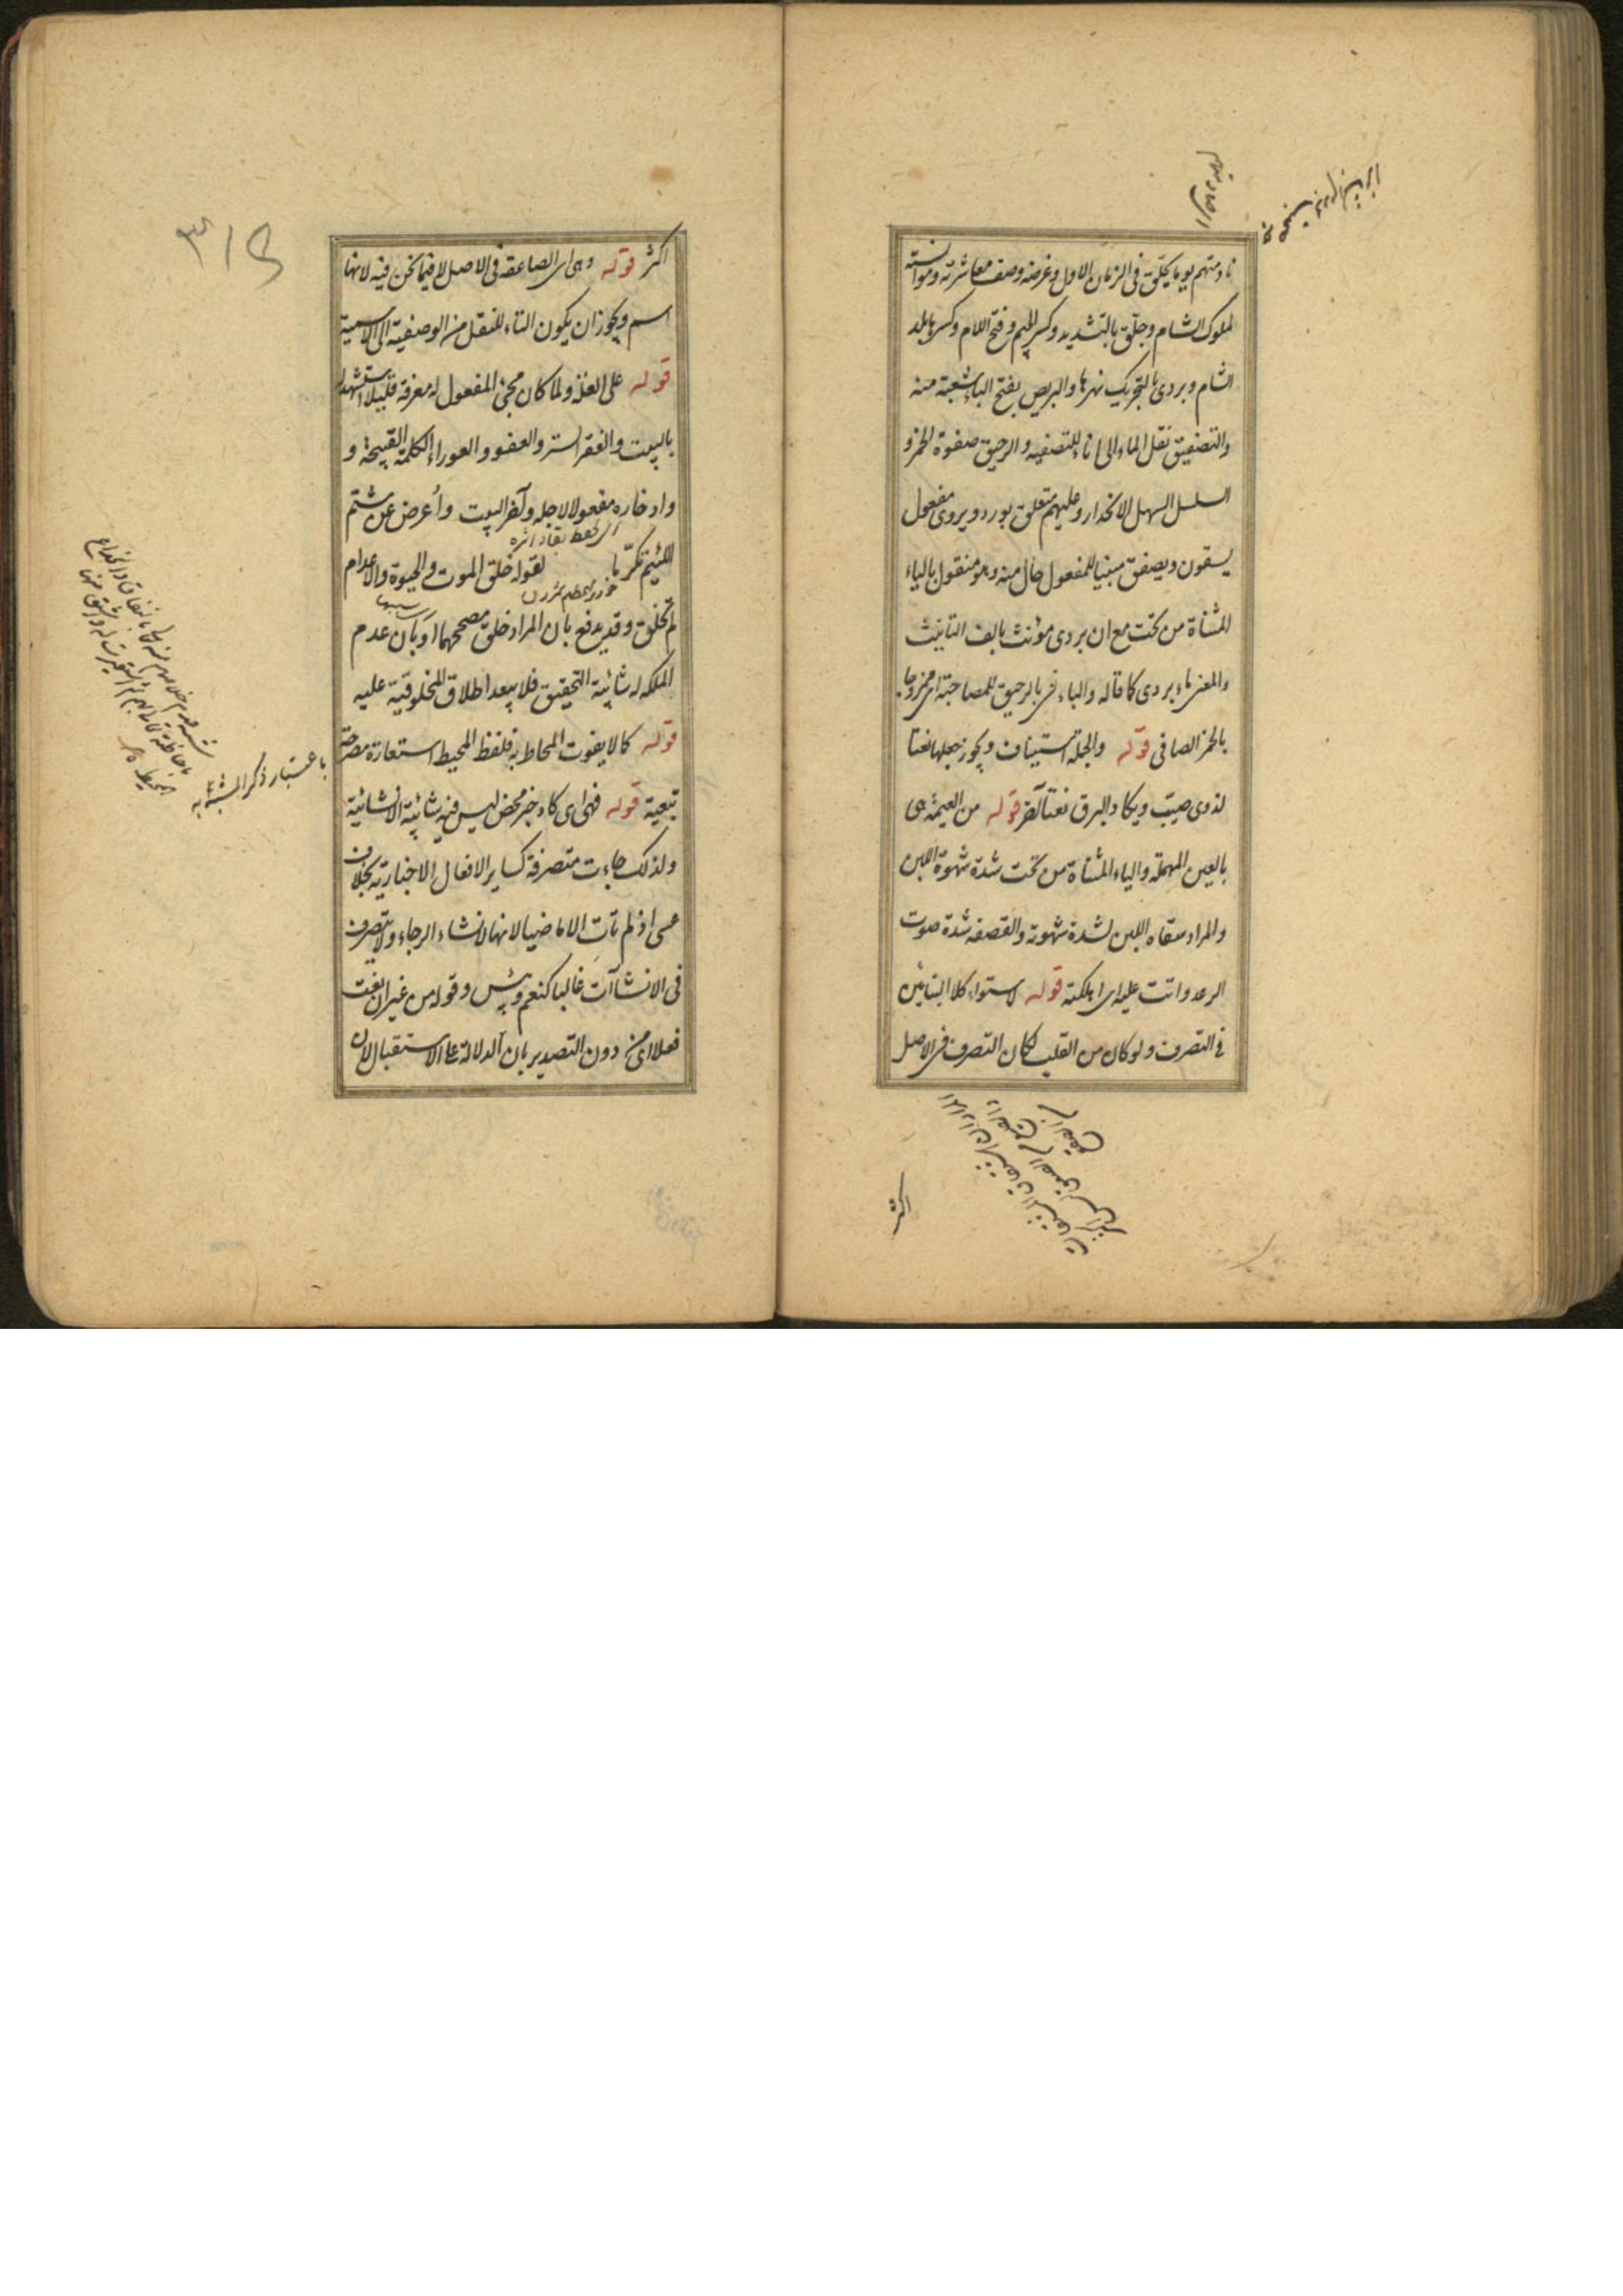 نادمتهم يوما بجلق فى الزمان الاول وغرضه وصف معاشرته وموانسته
لملوك الشام وجلق بالتشديد وكسر الجيم وفتح اللام وكسرها بلد
الشام وبردى بالتحريك نهرها والبريص بفتح الباء شعبة منه
والتصفيق نقل الماء الى اناء للتصفيه والرحيق صفوة الخمر و
السلسل السهل الانحدار وعليهم متعلق بورد ويروى مفعول
يسقون ويصفق مبنيا للمفعول حال منه وهو منقول بالياء
المثناة من تحت مع ان بردى مؤنث بالف التانيث
والمعنى ماء بردى كما قاله والباء فى بالرحيق للمصاحبة اى ممزوجا
بالخمر الصافى قوله والجملة استيناف ويجوز جعلها نعتا
لذوى صيب ويكاد البرق نعتا آخر قوله من العيمة هى
بالعين المهملة والياء المثناة من تحت شدة شهوة اللبن
والمراد سقاه اللبن لشدة شهوته والقصفه شدة صوت
الرعد واتت عليه اى اهلكته قوله لاستواء كلا البنائين
فى التصرف ولو كان من القلب لكان التصرف فى الاصل
اكثر
اكثر قوله وهى اى الصاعقة فى الاصل لا فيما نحن فيه لانها
اسم ويجوز ان يكون التاء للنقل من الوصفية الى الاسمية
قوله على العلة ولما كان مجئ المفعول له معرفة قليلا استشهد له
بالبيت والغفر الستر والعفو والعوراء الكلمة القبيحة و
وادخاره مفعولا لاجله وآخر البيت وأعرض عن شتم
اللئيم تكرّما لقوله خلق الموت والحيوة والاعدام
لم تخلق وقد يدفع بان المراد خلق مصححهما او بان عدم
الملكه له شائبة التحقيق فلا يبعد اطلاق المخلوقية عليه
قوله كما لا يفوت المحاط به فلفظ المحيط استعارة مصرحة
باعتبار ذكر المشبه به
تبعية قوله فهى اى كاد خبر محض ليس فيه شائبة الانشائية
ولذلك جاءت متصرفة كساير الافعال الاخبارية بخلاف
عسى اذ لم تات الا ماضيا لانها لانشاء الرجاء ولا يتصرف
فى الانشاآت غالبا كنعم وبئس وقوله من غير ان بغت
فعلا اى من دون التصدير بان الدلالة على الاستقبال لان